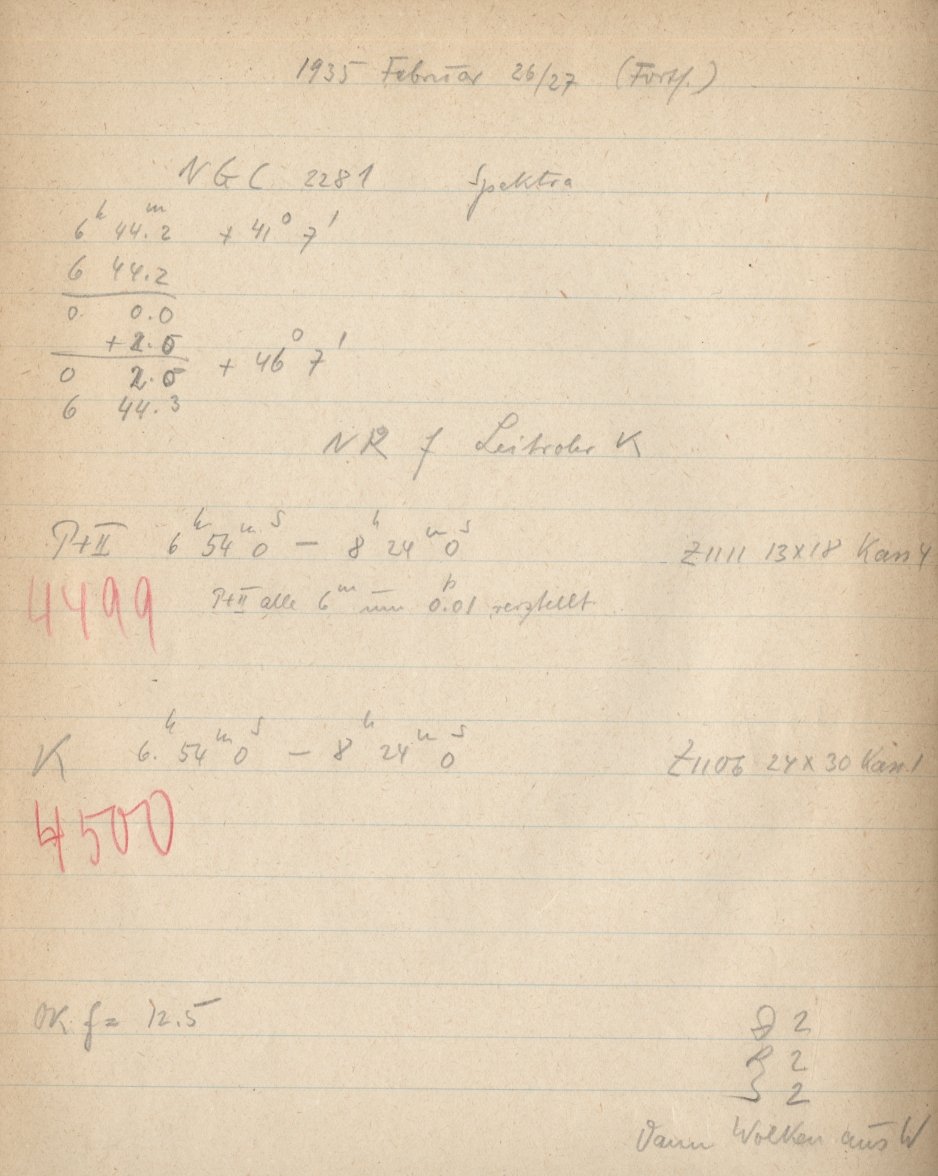 1935 Februar 26/27 (Forts.)
NGC 2281 Spektra
6h 44.m2 + 41° 7'
6 44.2
0 0.0
+ 2.0
0 2.0 + 46° 7'
6 44.3
NR f Leitrohr K
P+II 6h 54m 0s — 8h 24m 0s Z1111 13x18 Kass 4
4499 P+II alle 6m um 0.p01 verstellt
K 6.h 54m 0s — 8h 24m 0s Z1106 24x30 Kass. 1
4500
OK. f = 12.5
2
R 2
S 2
Dann Wolken aus W